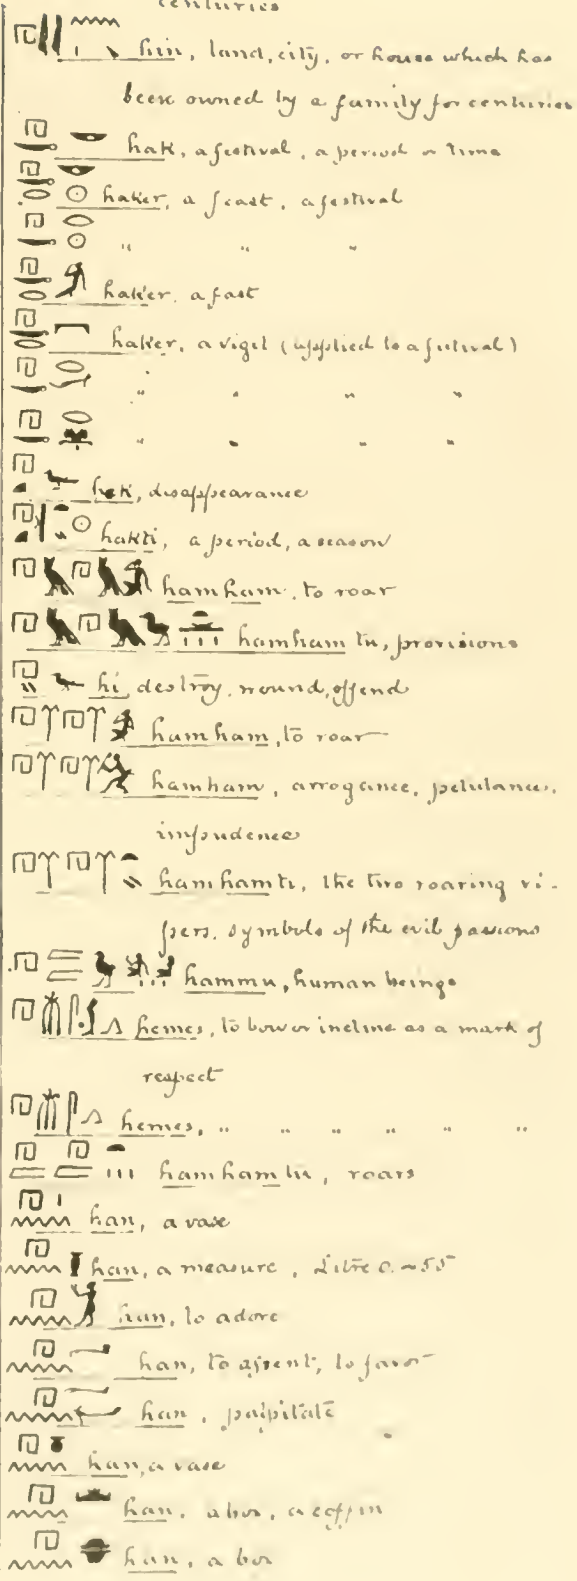 centuries
hin, land, city, or house which has
been owned by a family for centuries
hak, a festival, a period or time
haker, a feast, a festival
" " "
haker, a fast
haker, a vigil (applied to a festival)
" " " "
" " " "
hek, disappearance
hakti, a period, a season
hamham, to roar
hamhamtu, provisions
hi, destroy, wound, offend
hamham, to roar
hamham, arrogance, petulance,
impudence
hamhamti, the two roaring vi-
pers, symbols of the evil passions
hammu, human beings
hemes, to bow or incline as a mark of
respect
hemes, " " " " " "
hamhamtu, roars
han, a vase
han, a measure, Litre
han, to adore
han, to assent, to favor
han, palpitate
han, a vase
han, a box, a coffin
han, a box